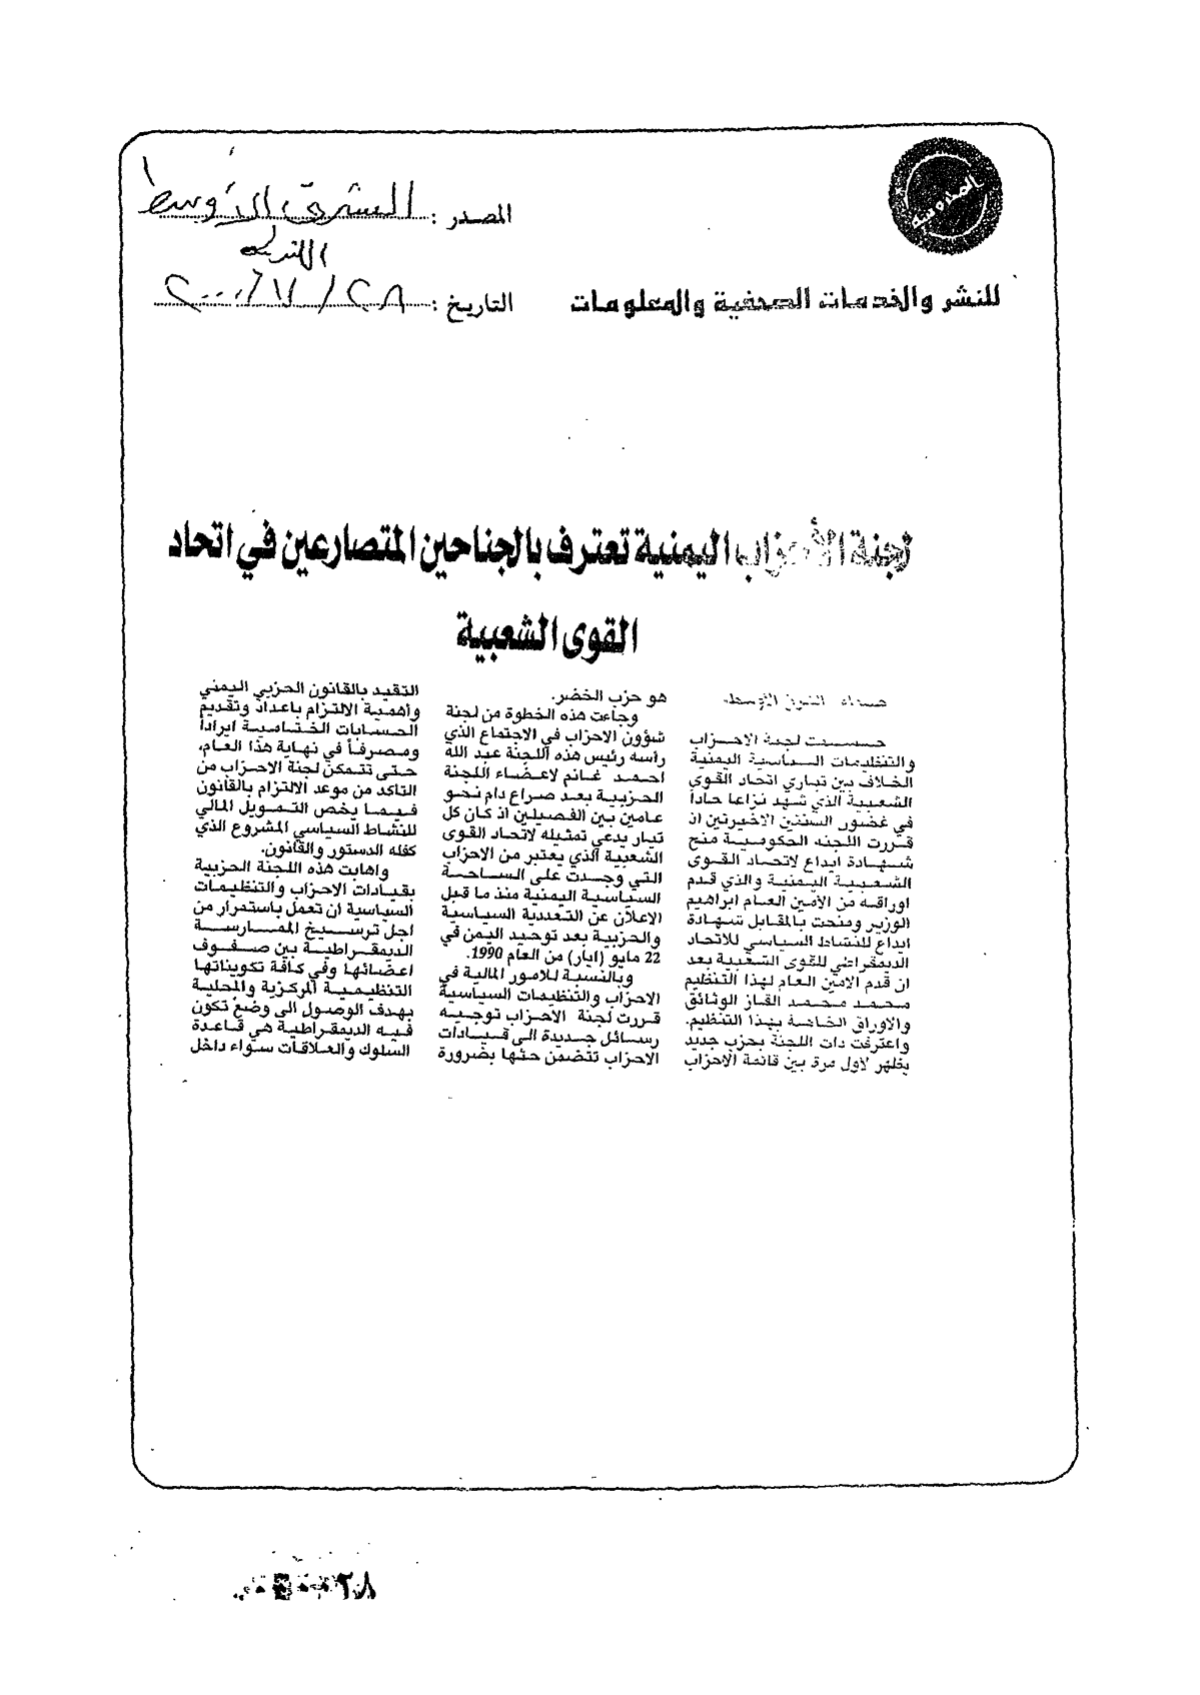 المصدر : الشرق الأوسط
اللندنية
التاريخ : ٢٨ / ٧ / ٢٠٠٠
للنشر والخدمات الصحفية والمعلومات
لجنة الأحزاب اليمنية تعترف بالجناحين المتصارعين في اتحاد
القوى الشعبية
صنعاء الشرق الأوسط
حسمت لجنة الاحزاب
والتنظيمات السياسية اليمنية
الخلاف بين تياري اتحاد القوى
الشعبية الذي شهد نزاعا حاداً
في غضون السنتين الاخيرتين اذ
قررت اللجنة الحكومية منح
شهادة ايداع لاتحاد القوى
الشعبية اليمنية والذي قدم
اوراقه من الأمين العام ابراهيم
الوزير ومنحت بالمقابل شهادة
ايداع للنشاط السياسي للاتحاد
الديمقراطي للقوى الشعبية بعد
ان قدم الامين العام لهذا التنظيم
محمد محمد القاز الوثائق
والاوراق الخاصة بهذا التنظيم.
واعترفت ذات اللجنة بحزب جديد
يظهر لاول مرة بين قائمة الاحزاب
هو حزب الخضر.
وجاءت هذه الخطوة من لجنة
شؤون الاحزاب في الاجتماع الذي
رأسه رئيس هذه اللجنة عبد الله
احمد غانم لاعضاء اللجنة
الحزبية بعد صراع دام نحو
عامين بين الفصيلين اذ كان كل
تيار يدعي تمثيله لاتحاد القوى
الشعبية الذي يعتبر من الاحزاب
التي وجدت على الساحة
السياسية اليمنية منذ ما قبل
الاعلان عن التعددية السياسية
والحزبية بعد توحيد اليمن في
22 مايو (ايار) من العام 1990.
وبالنسبة للامور المالية في
الاحزاب والتنظيمات السياسية
قررت لجنة الاحزاب توجيه
رسائل جديدة الى قيادات
الاحزاب تتضمن حثها بضرورة
التقيد بالقانون الحزبي اليمني
وأهمية الالتزام باعداد وتقديم
الحسابات الختامية ايراداً
ومصرفاً في نهاية هذا العام،
حتى تتمكن لجنة الاحزاب من
التاكد من موعد الالتزام بالقانون
فيما يخص التمويل المالي
للنشاط السياسي المشروع الذي
كفله الدستور والقانون.
واهابت هذه اللجنة الحزبية
بقيادات الاحزاب والتنظيمات
السياسية ان تعمل باستمرار من
اجل ترسيخ الممارسة
الديمقراطية بين صفوف
اعضائها وفي كافة تكويناتها
التنظيمية المركزية والمحلية
بهدف الوصول الى وضع تكون
فيه الديمقراطية هي قاعدة
السلوك والعلاقات سواء داخل